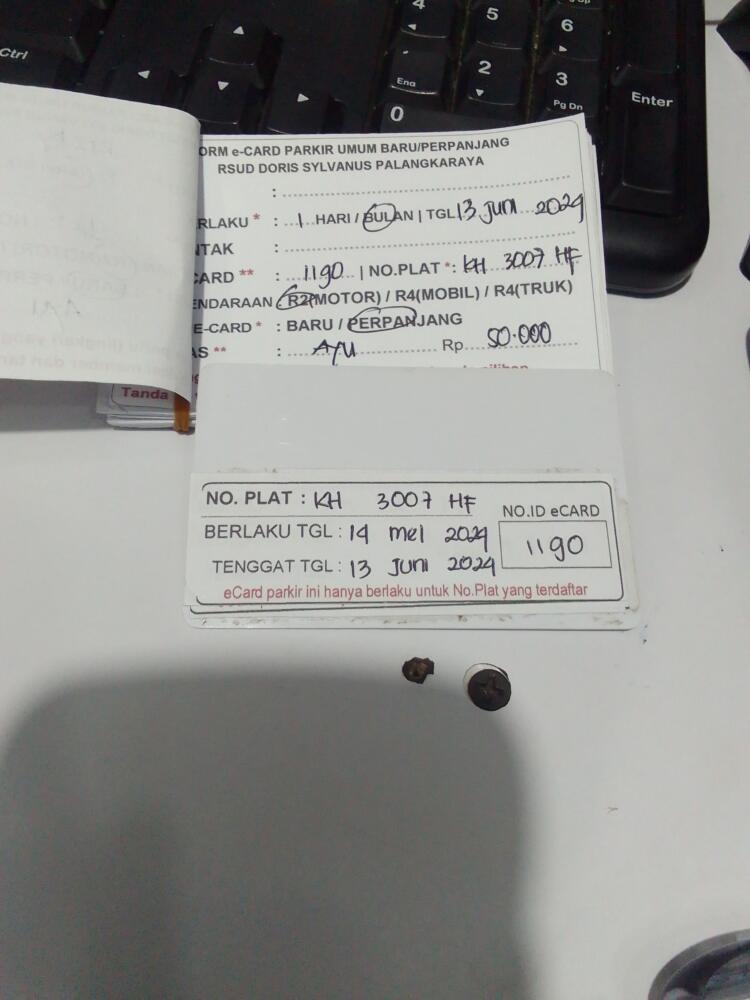 Ctrl
4
5
6
End
2
3
Pg Dn
Enter
0
ORM e-CARD PARKIR UMUM BARU/PERPANJANG
RSUD DORIS SYLVANUS PALANGKARAYA
: 
ERLAKU * : 1 HARI / BULAN | TGL 13 Juni 2024
NTAK :
CARD ** : 1190 | NO.PLAT *: KH 3007 HF
ENDARAAN : R2(MOTOR) / R4(MOBIL) / R4(TRUK)
E-CARD * : BARU / PERPANJANG
AS ** : AYU Rp 50.000
Tanda
NO. PLAT : KH 3007 HF
NO.ID eCARD
BERLAKU TGL : 14 mei 2024
1190
TENGGAT TGL : 13 Juni 2024
eCard parkir ini hanya berlaku untuk No.Plat yang terdaftar